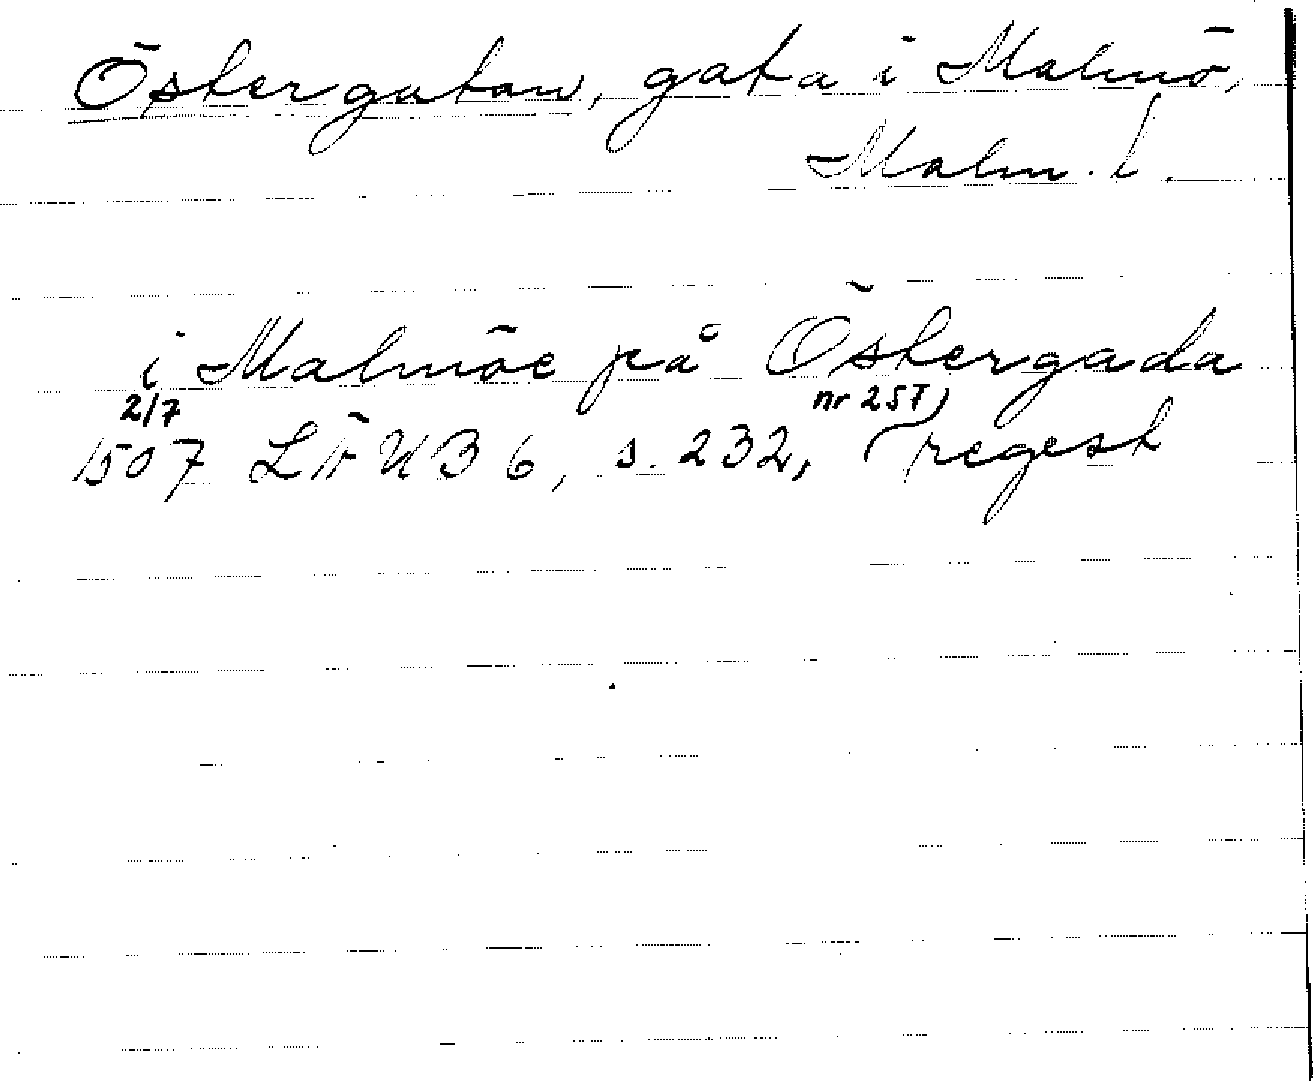 Östergatan, gata i Malmö,
Malm. l.
i Malmöe på Östergada
2/7 nr 257
1507 LÄUB 6, s. 232, regest